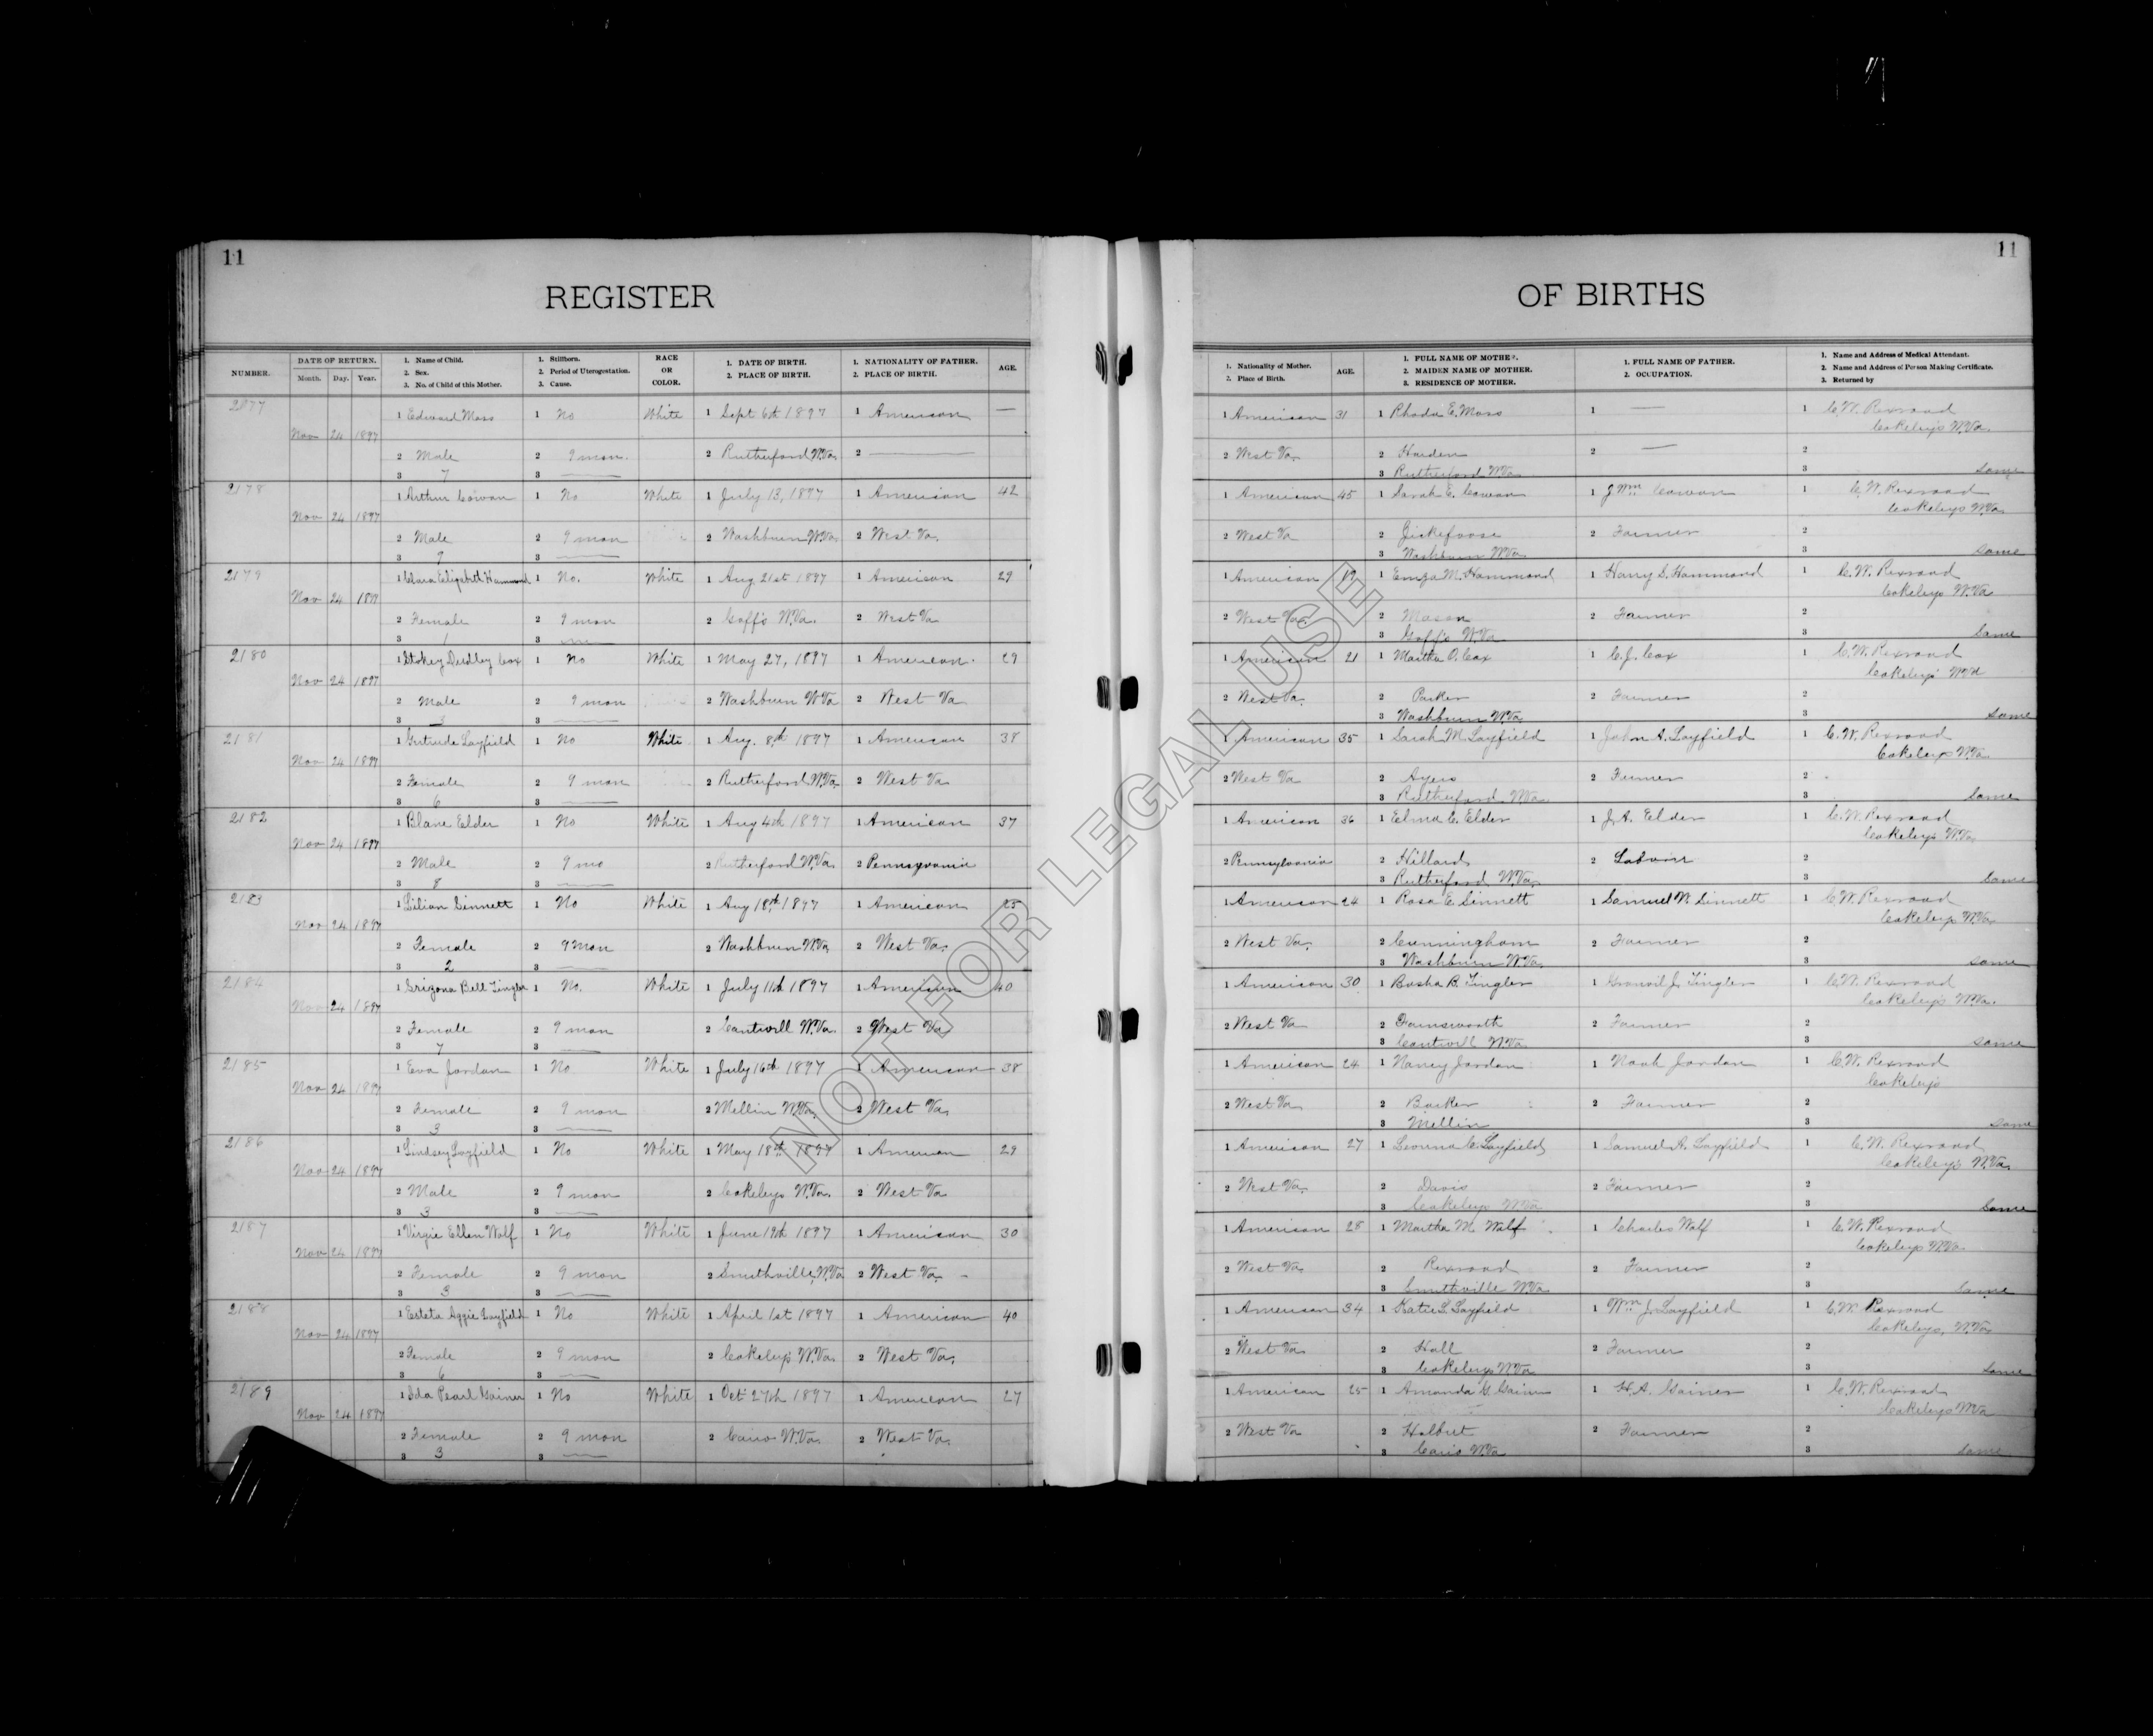 11
REGISTER
NUMBER.
DATE OF RETURN.
Month. Day. Year.
1. Name of Child.
2. Sex.
3. No. of Child of this Mother.
1. Stillborn.
2. Period of Uterogestation.
3. Cause.
RACE OR COLOR.
1. DATE OF BIRTH.
2. PLACE OF BIRTH.
1. NATIONALITY OF FATHER.
2. PLACE OF BIRTH.
AGE.
2177 1 Edward Moss 1 No White 1 Sept 6th 1897 1 American —
Nov 24 1897
2 Male 2 9 mon. 2 Rutherford W.Va. 2 —
3 7 3 —
2178 1 Arthur Cowan 1 No White 1 July 13, 1897 1 American 42
Nov 24 1897
2 Male 2 9 mon 2 Washburn W.Va. 2 West Va.
3 9 3 —
2179 1 Clara Elizabeth Hammond 1 No. White 1 Aug 21st 1897 1 American 29
Nov 24 1897
2 Female 2 9 mon 2 Goffs W.Va. 2 West Va
3 1 3 —
2180 1 Stokey Dudley Cox 1 No White 1 May 27, 1897 1 American. 29
Nov 24 1897
2 Male 2 9 mon 2 Washburn W.Va 2 West Va
3 3 3 —
2181 1 Gertrude Layfield 1 No White 1 Aug. 8th 1897 1 American 38
Nov 24 1897
2 Female 2 9 mon 2 Rutherford W.Va. 2 West Va
3 6 3 —
2182 1 Blane Elder 1 No White 1 Aug 4th 1897 1 American 37
Nov 24 1897
2 Male 2 9 mo 2 Rutherford W.Va. 2 Pennsyvania
3 8 3 —
2183 1 Lilian Sinnett 1 No White 1 Aug 18th 1897 1 American 25
Nov 24 1897
2 Female 2 9 mon 2 Washburn W.Va. 2 West Va.
3 2 3 —
2184 1 Arizona Bell Tingler 1 No. White 1 July 11th 1897 1 American 40
Nov 24 1897
2 Female 2 9 mon 2 Cantwell W.Va. 2 West Va
3 7 3 —
2185 1 Eva Jordan 1 No White 1 July 16th 1897 1 American 38
Nov 24 1897
2 Female 2 9 mon 2 Mellin W.Va. 2 West Va,
3 3 3 —
2186 1 Lindsey Layfield 1 No White 1 May 18th 1897 1 American 29
Nov 24 1897
2 Male 2 9 mon 2 Cokeleys W.Va. 2 West Va
3 3 3 —
2187 1 Virgie Ellen Wolf 1 No White 1 June 19th 1897 1 American 30
Nov 24 1897
2 Female 2 9 mon 2 Smithville, W.Va 2 West Va.
3 3 3 —
2188 1 Esteta Aggie Layfield 1 No White 1 April 1st 1897 1 American 40
Nov 24 1897
2 Female 2 9 mon 2 Cokeley's W.Va. 2 West Va.
3 6 3 —
2189 1 Ida Pearl Gainer 1 No White 1 Oct 27th 1897 1 American 27
Nov 24 1897
2 Female 2 9 mon 2 Cairo W.Va. 2 West Va.
3 3 3 —
11
OF BIRTHS
1. Nationality of Mother.
2. Place of Birth.
AGE.
1. FULL NAME OF MOTHER.
2. MAIDEN NAME OF MOTHER.
3. RESIDENCE OF MOTHER.
1. FULL NAME OF FATHER.
2. OCCUPATION.
1. Name and Address of Medical Attendant.
2. Name and Address of Person Making Certificate.
3. Returned by
1 American 31 1 Rhoda E. Moss 1 — 1 C.W. Rexroad
Cokeleys W.Va.
2 West Va. 2 Harden 2 — 2
3 Rutherford W.Va. 3 Same
1 American 45 1 Sarah E. Cowan 1 J Wm Cowan 1 C.W. Rexroad
Cokeleys W.Va.
2 West Va 2 Zickefoose 2 Farmer 2
3 Washburn W.Va. 3 Same
1 American 19 1 M. Hammond 1 Harry S. Hammond 1 C.W. Rexroad
Cokeleys W.Va
2 West Va. 2 Mason 2 Farmer 2
3 Goff's W.Va 3 Same
1 American 21 1 Martha O. Cox 1 C.J. Cox 1 C.W. Rexroad
Cokeleys W.Va
2 West Va. 2 Parker 2 Farmer 2
3 Washburn W.Va 3 Same
1 American 35 1 Sarah M. Layfield 1 John A. Layfield 1 C.W. Rexroad
Cokeleys W.Va.
2 West Va 2 Ayers 2 Farmer 2
3 Rutherford W.Va. 3 Same
1 American 36 1 Elma C. Elder 1 J.A. Elder 1 C.W. Rexroad
Cokeley's W.Va.
2 Pennsylvania 2 Hillard 2 Laborer 2
3 Rutherford W.Va. 3 Same
1 American 24 1 Rosa E. Sinnett 1 Samuel W. Sinnett 1 C.W. Rexroad
Cokeleys W.Va.
2 West Va. 2 Cunningham 2 Farmer 2
3 Washburn W.Va. 3 Same
1 American 30 1 Basha B. Tingler 1 Granvil J. Tingler 1 C.W. Rexroad
Cokeleys W.Va.
2 West Va 2 Farnsworth 2 Farmer 2
3 Cantwell W.Va 3 Same
1 American 24 1 Nancy Jordan 1 Noah Jordan 1 C.W. Rexroad
Cokeleys
2 West Va 2 Barker 2 Farmer 2
3 Mellin 3 Same
1 American 27 1 C. Layfield 1 Samuel A. Layfield 1 C.W. Rexroad
Cokeley's W.Va.
2 West Va. 2 Davis 2 Farmer 2
3 Cokeleys W.Va 3 Same
1 American 28 1 Martha M. Wolf 1 Charles Wolf 1 C.W. Rexroad
Cokeleys W.Va.
2 West Va 2 Rexroad 2 Farmer 2
3 Smithville W.Va. 3 Same
1 American 34 1 Katie L. Layfield 1 Wm J. Layfield 1 C.W. Rexroad
Cokeleys, W.Va.
2 West Va 2 Hall 2 Farmer 2
3 Cokeleys W.Va 3 Same
1 American 25 1 Amanda G. Gainer 1 H.A. Gainer 1 C.W. Rexroad
Cokeleys W.Va
2 West Va 2 Holbert 2 Farmer 2
3 Cairo W.Va 3 Same
NOT FOR LEGAL USE